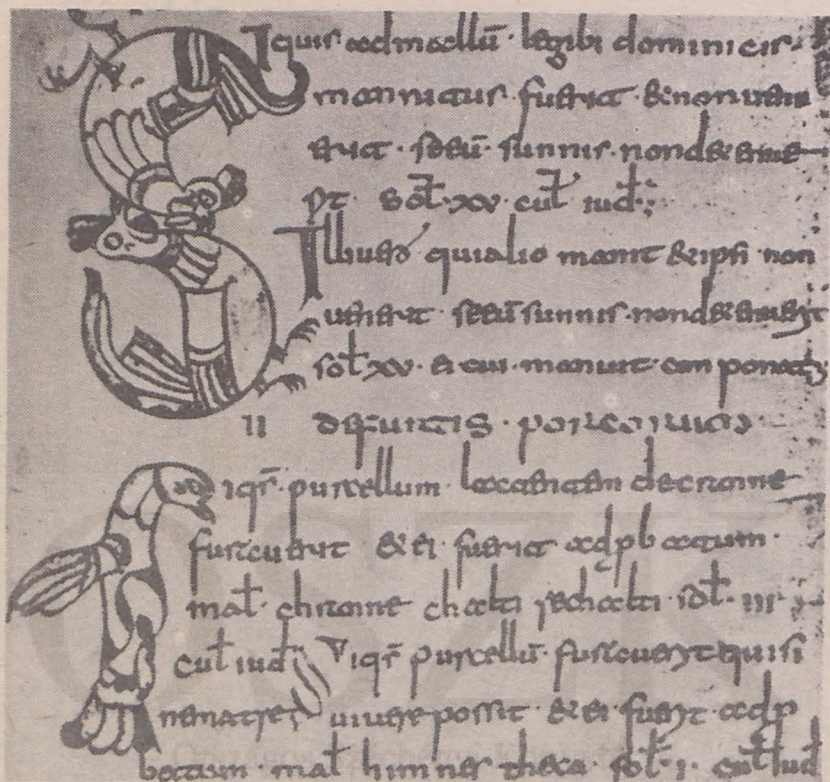 Siquis admallū · legibi dominicis ·
mannitus · fuerit · & non uen
erit · sunnis · non d&enue
rit sol̄ · xv · cul̄ iud̄ :
Illi uerō qui alio manit & ipsi non
uenerit sunnis · non d&enuerit
sol̄ xv · et cui · manuit · con ponat
II de furtis · porcorum
Siqs̄ · purcellum lactantem de cranne
furauerit & ei · fuerit adpbatum ·
mal̄ · chranne chalti rechalti · sol̄ · iii ·
cul̄ iud̄ Siqs̄ purcellū · furauerit qui si
ne matre uiuere possit · & ei · fuerit adp
batum · mal̄ himnes theca · sol̄ · i · cul̄ iud̄
OSZK